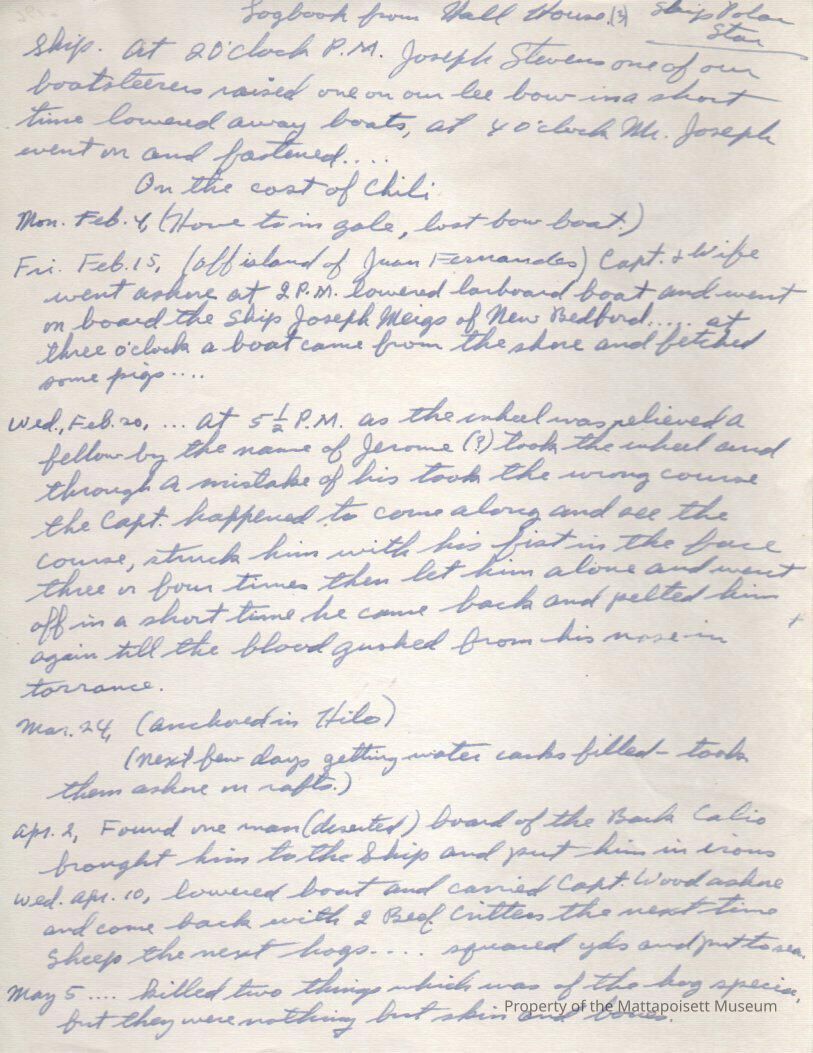 Logbook from Hall House (?) Ship Polar
Star
Ship. At 2 O'clock P.M. Joseph Stevens one of our
boatsteerers raised one on our lee bow in a short
time lowered away boats, at 4 o'clock Mr. Joseph
went on and fastened....
On the cost of Chili
Mon. Feb. 4, (Hove to in gale, lost bow boat.)
Fri. Feb. 15, (off island of Juan Fernandes) Capt. & Wife
went ashore at 2 P.M. lowered larboard boat and went
on board the Ship Joseph Meigs of New Bedford..... at
three o'clock a boat came from the shore and fetched
some pigs....
Wed., Feb. 20, ... at 5 1/2 P.M. as the wheel was relieved a
fellow by the name of Jerome (?) took the wheel and
through a mistake of his took the wrong course
the Capt. happened to come along and see the
course, struck him with his fist in the face
three or four times then let him alone and went
off in a short time he came back and pelted him
again till the blood gushed from his nose in
torrance.
Mar. 24, (anchored in Hilo)
(next few days getting water casks filled - took
them ashore on rafts.)
Apr. 2, Found one man (deserted) board of the Bark Calio
brought him to the Ship and put him in irons
Wed. Apr. 10, lowered boat and carried Capt. Wood ashore
and come back with 2 Beef Critters the next time
Sheep the next hogs.... squared yds and put to sea.
May 5 .... killed two things which was of the hog specia,
but they were nothing but skin and bones.
Property of the Mattapoisett Museum